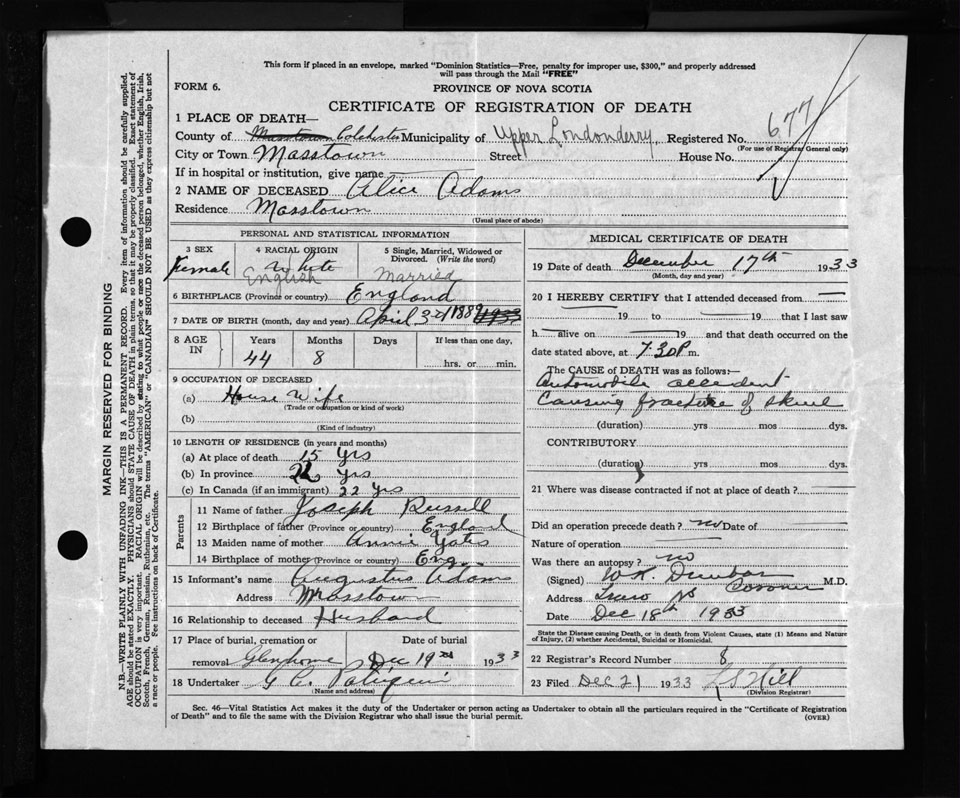 This form if placed in an envelope, marked "Dominion Statistics—Free, penalty for improper use, $300," and properly addressed
will pass through the Mail "FREE"
FORM 6.
PROVINCE OF NOVA SCOTIA
CERTIFICATE OF REGISTRATION OF DEATH
1 PLACE OF DEATH—
County of Masstown Colchester Municipality of Upper Londonderry Registered No. 677
(For use of Registrar General only)
City or Town Masstown Street House No.
If in hospital or institution, give name
2 NAME OF DECEASED Alice Adams
Residence Masstown
(Usual place of abode)
PERSONAL AND STATISTICAL INFORMATION
3 SEX 4 RACIAL ORIGIN 5 Single, Married, Widowed or
Divorced. (Write the word)
Female White
English Married
6 BIRTHPLACE (Province or country) England
7 DATE OF BIRTH (month, day and year) April 30/1889 1933
8 AGE IN Years Months Days If less than one day,
44 8 hrs. or min.
9 OCCUPATION OF DECEASED
(a) House Wife
(Trade or occupation or kind of work)
(b)
(Kind of industry)
10 LENGTH OF RESIDENCE (in years and months)
(a) At place of death 15 yrs
(b) In province 22 yrs
(c) In Canada (if an immigrant) 22 yrs
Parents
11 Name of father Joseph Russell
12 Birthplace of father (Province or country) England
13 Maiden name of mother Annie Yates
14 Birthplace of mother (Province or country) Eng.
15 Informant's name Augustus Adams
Address Masstown
16 Relationship to deceased Husband
17 Place of burial, cremation or Date of burial
removal Glenholme Dec 19th 1933
18 Undertaker G C
(Name and address)
MEDICAL CERTIFICATE OF DEATH
19 Date of death December 17th 1933
(Month, day and year)
20 I HEREBY CERTIFY that I attended deceased from
19 to 19 that I last saw
h alive on 19 and that death occurred on the
date stated above, at 7.30 P. m.
The CAUSE of DEATH was as follows:—
Automobile accident
Causing fracture of skull
(duration) yrs mos dys.
CONTRIBUTORY
(duration) yrs mos dys.
21 Where was disease contracted if not at place of death?
Did an operation precede death? no Date of
Nature of operation
Was there an autopsy? no
(Signed) W.R. Dunbar M.D.
Coroner
Address Truro NS
Date Dec 18th 1933
State the Disease causing Death, or in death from Violent Causes, state (1) Means and Nature
of Injury, (2) whether Accidental, Suicidal or Homicidal.
22 Registrar's Record Number 8
23 Filed Dec 21 1933 L S Hill
(Division Registrar)
Sec. 46—Vital Statistics Act makes it the duty of the Undertaker or person acting as Undertaker to obtain all the particulars required in the "Certificate of Registration
of Death" and to file the same with the Division Registrar who shall issue the burial permit.
(OVER)
MARGIN RESERVED FOR BINDING
N.B.—WRITE PLAINLY WITH UNFADING INK—THIS IS A PERMANENT RECORD. Every item of information should be carefully supplied.
AGE should be stated EXACTLY. PHYSICIANS should STATE CAUSE OF DEATH in plain terms, so that it may be properly classified. Exact statement of
OCCUPATION is very important. RACIAL ORIGIN will be described by stating to what people or race the deceased person belonged, whether English, Irish,
Scotch, French, German, Russian, Ruthenian, etc. The terms "AMERICAN" or "CANADIAN" SHOULD NOT BE USED as they express citizenship but not
a race or people. Fee instructions on back of Certificate.